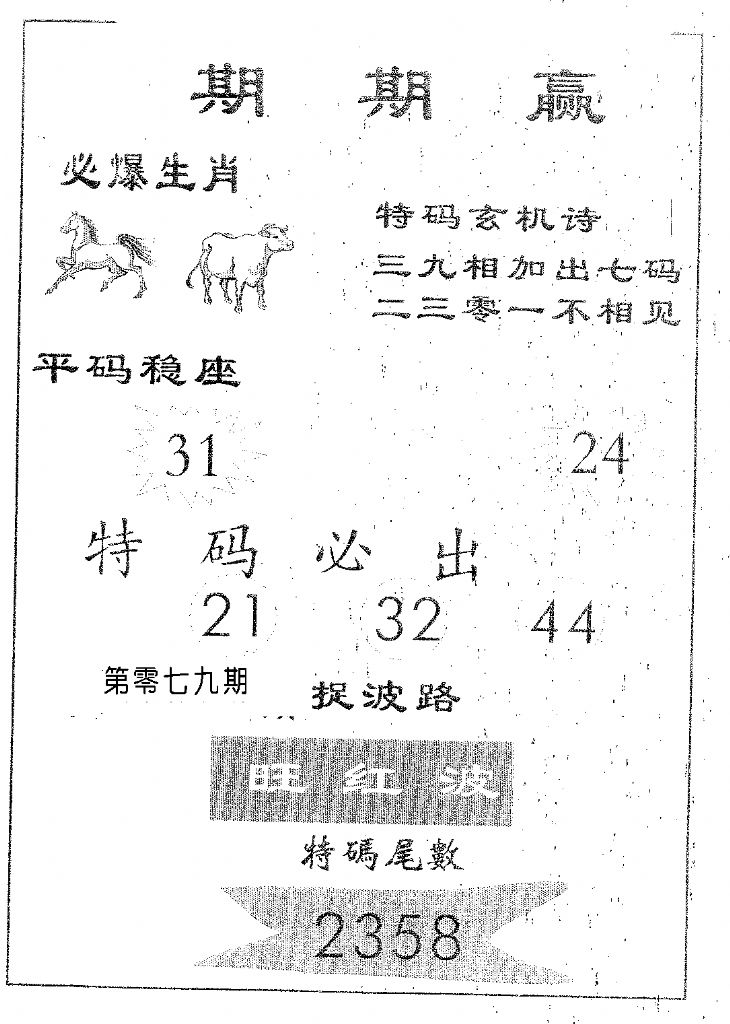 期期赢
必爆生肖
特码玄机诗
三九相加出七码
二三零一不相见
平码稳座
31 24
特码必出
21 32 44
第零七九期
捉波路
旺红波
特碼尾數
2358